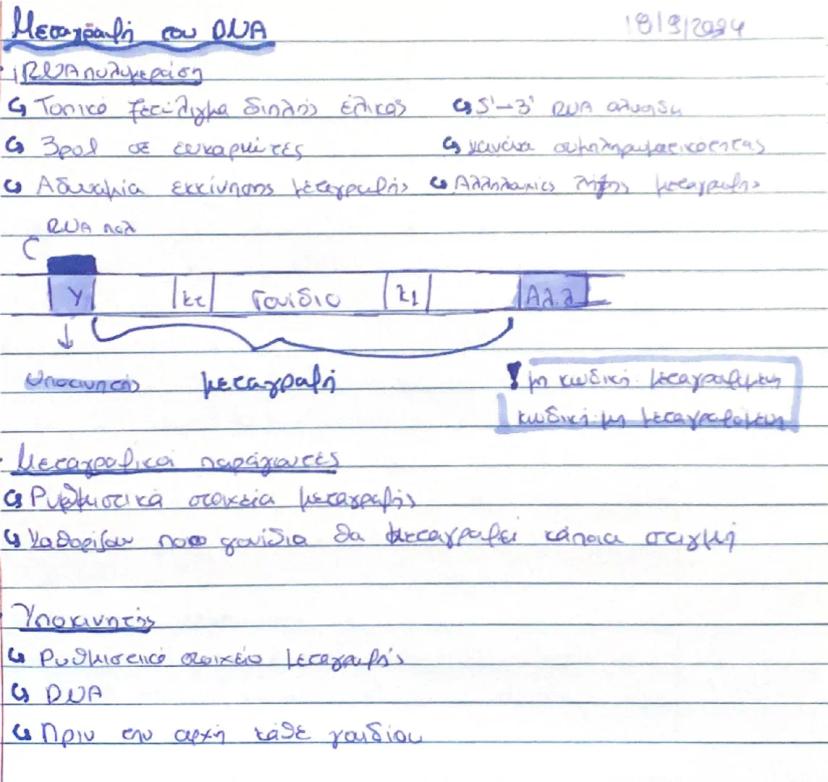 Μεταγραφή του DNA
18/9/2024
RNA πολυμεράση
↳ Τοπικό ξετύλιγμα διπλής έλικας
↳ 5'-3' RNA αλυσίδα
↳ 3 pol σε ευκαρυώτες
↳ κανόνα συμπληρωματικότητας
↳ Αδυναμία εκκίνησης μεταγραφής
↳ Αλληλουχίες λήξης μεταγραφής
RNA πολ
Υ κε Γονίδιο κλ Αλ.λ
↓
Υποκινητής μεταγραφή ! μη κωδική μεταγραφόμενη
κωδική μη μεταγραφόμενη
Μεταγραφικοί παράγοντες
↳ Ρυθμιστικά στοιχεία μεταγραφής
↳ Καθορίζουν ποιο γονίδιο θα μεταγραφεί κάποια στιγμή
Υποκινητής
↳ Ρυθμιστικό στοιχείο μεταγραφής
↳ DNA
↳ Πριν την αρχή κάθε γονιδίου